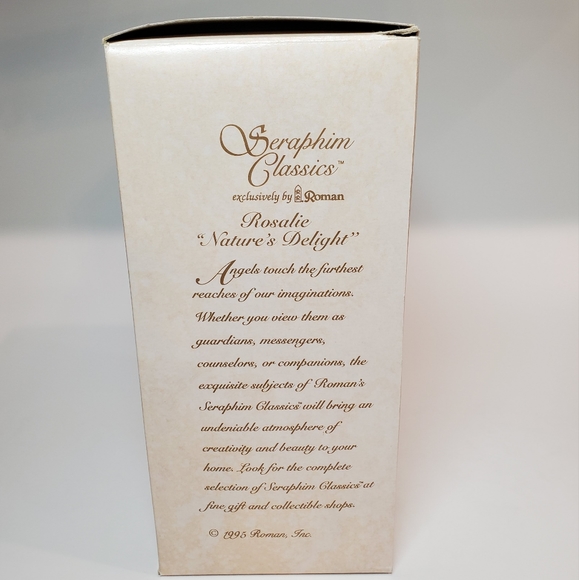 Seraphim
Classics™
exclusively by Roman
Rosalie
"Nature's Delight"
Angels touch the furthest
reaches of our imaginations.
Whether you view them as
guardians, messengers,
counselors, or companions, the
exquisite subjects of Roman's
Seraphim Classics™ will bring an
undeniable atmosphere of
creativity and beauty to your
home. Look for the complete
selection of Seraphim Classics™ at
fine gift and collectible shops.
© 1995 Roman, Inc.